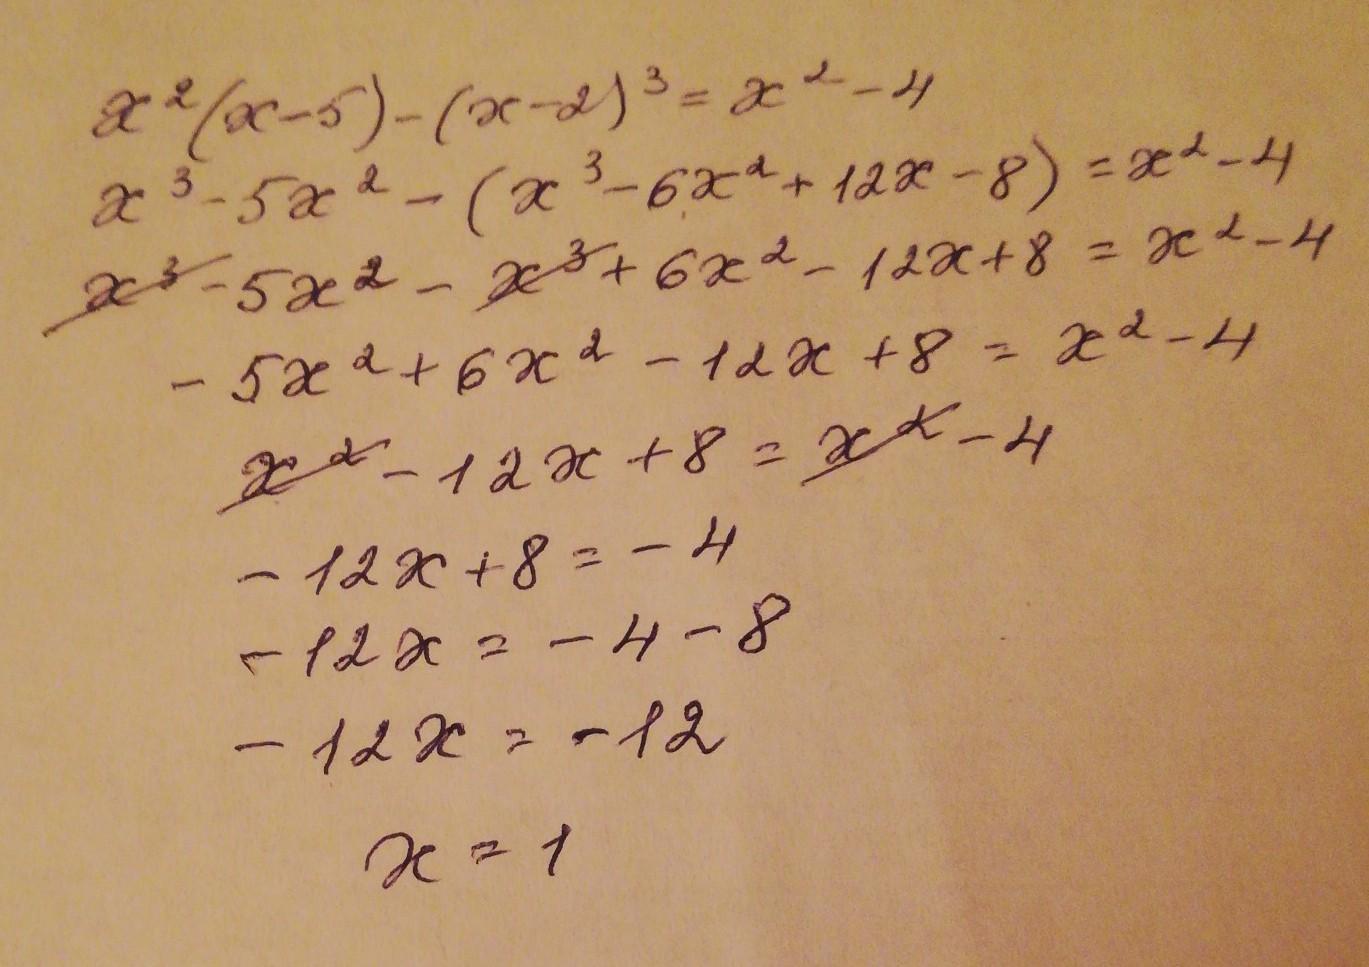 x²(x-5)-(x-2)³=x²-4
x³-5x²-(x³-6x²+12x-8)=x²-4
x³-5x²-x³+6x²-12x+8=x²-4
-5x²+6x²-12x+8=x²-4
x²-12x+8=x²-4
-12x+8=-4
-12x=-4-8
-12x=-12
x=1